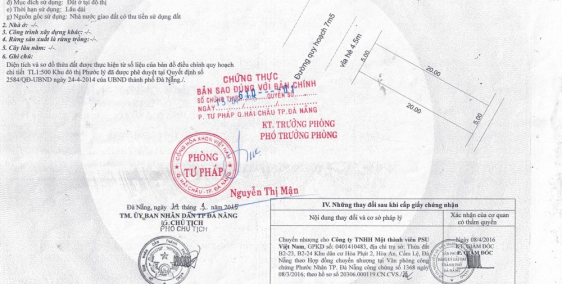 đ) Mục đích sử dụng: Đất ở tại đô thị
e) Thời hạn sử dụng: Lâu dài
g) Nguồn gốc sử dụng: Nhà nước giao đất có thu tiền sử dụng đất
2. Nhà ở: -/-.
3. Công trình xây dựng khác: -/-.
4. Rừng sản xuất là rừng trồng: -/-.
5. Cây lâu năm: -/-.
6. Ghi chú:
Diện tích và sơ đồ thửa đất được thực hiện từ số liệu của bản đồ điều chỉnh quy hoạch
chi tiết TL1:500 Khu đô thị Phước lý đã được phê duyệt tại Quyết định số
2584/QĐ-UBND ngày 24-4-2014 của UBND thành phố Đà Nẵng./.
Đường quy hoạch 7m5
vỉa hè 4.5m
5.00
20.00
20.00
5.00
CHỨNG THỰC
BẢN SAO ĐÚNG VỚI BẢN CHÍNH
SỐ CHỨNG THỰC QUYỂN SỐ
NGÀY
P. TƯ PHÁP Q.HẢI CHÂU TP.ĐÀ NẴNG
KT. TRƯỞNG PHÒNG
PHÓ TRƯỞNG PHÒNG
CỘNG HÒA XHCN VIỆT NAM
PHÒNG
TƯ PHÁP
Q.HẢI CHÂU - TP. ĐÀ NẴNG
Nguyễn Thị Mận
Đà Nẵng, ngày tháng năm 2015
TM. ỦY BAN NHÂN DÂN TP ĐÀ NẴNG
CHỦ TỊCH
PHÓ CHỦ TỊCH
IV. Những thay đổi sau khi cấp giấy chứng nhận
Nội dung thay đổi và cơ sở pháp lý
Xác nhận của cơ quan
có thẩm quyền
Chuyển nhượng cho Công ty TNHH Một thành viên PSU
Việt Nam, GPKD số: 0401410483, địa chỉ trụ sở: Thửa đất
B2-23, B2-24 Khu dân cư Hòa Phát 2, Hòa An, Cẩm Lệ, Đà
Nẵng theo Hợp đồng chuyển nhượng tại Văn phòng công
chứng Phước Nhân TP. Đà Nẵng công chứng số 1368 ngày
08/3/2016; theo hồ sơ số 20306.000119.CN.CVS.
Ngày 08/4/2016
KT. GIÁM ĐỐC
GIÁM ĐỐC